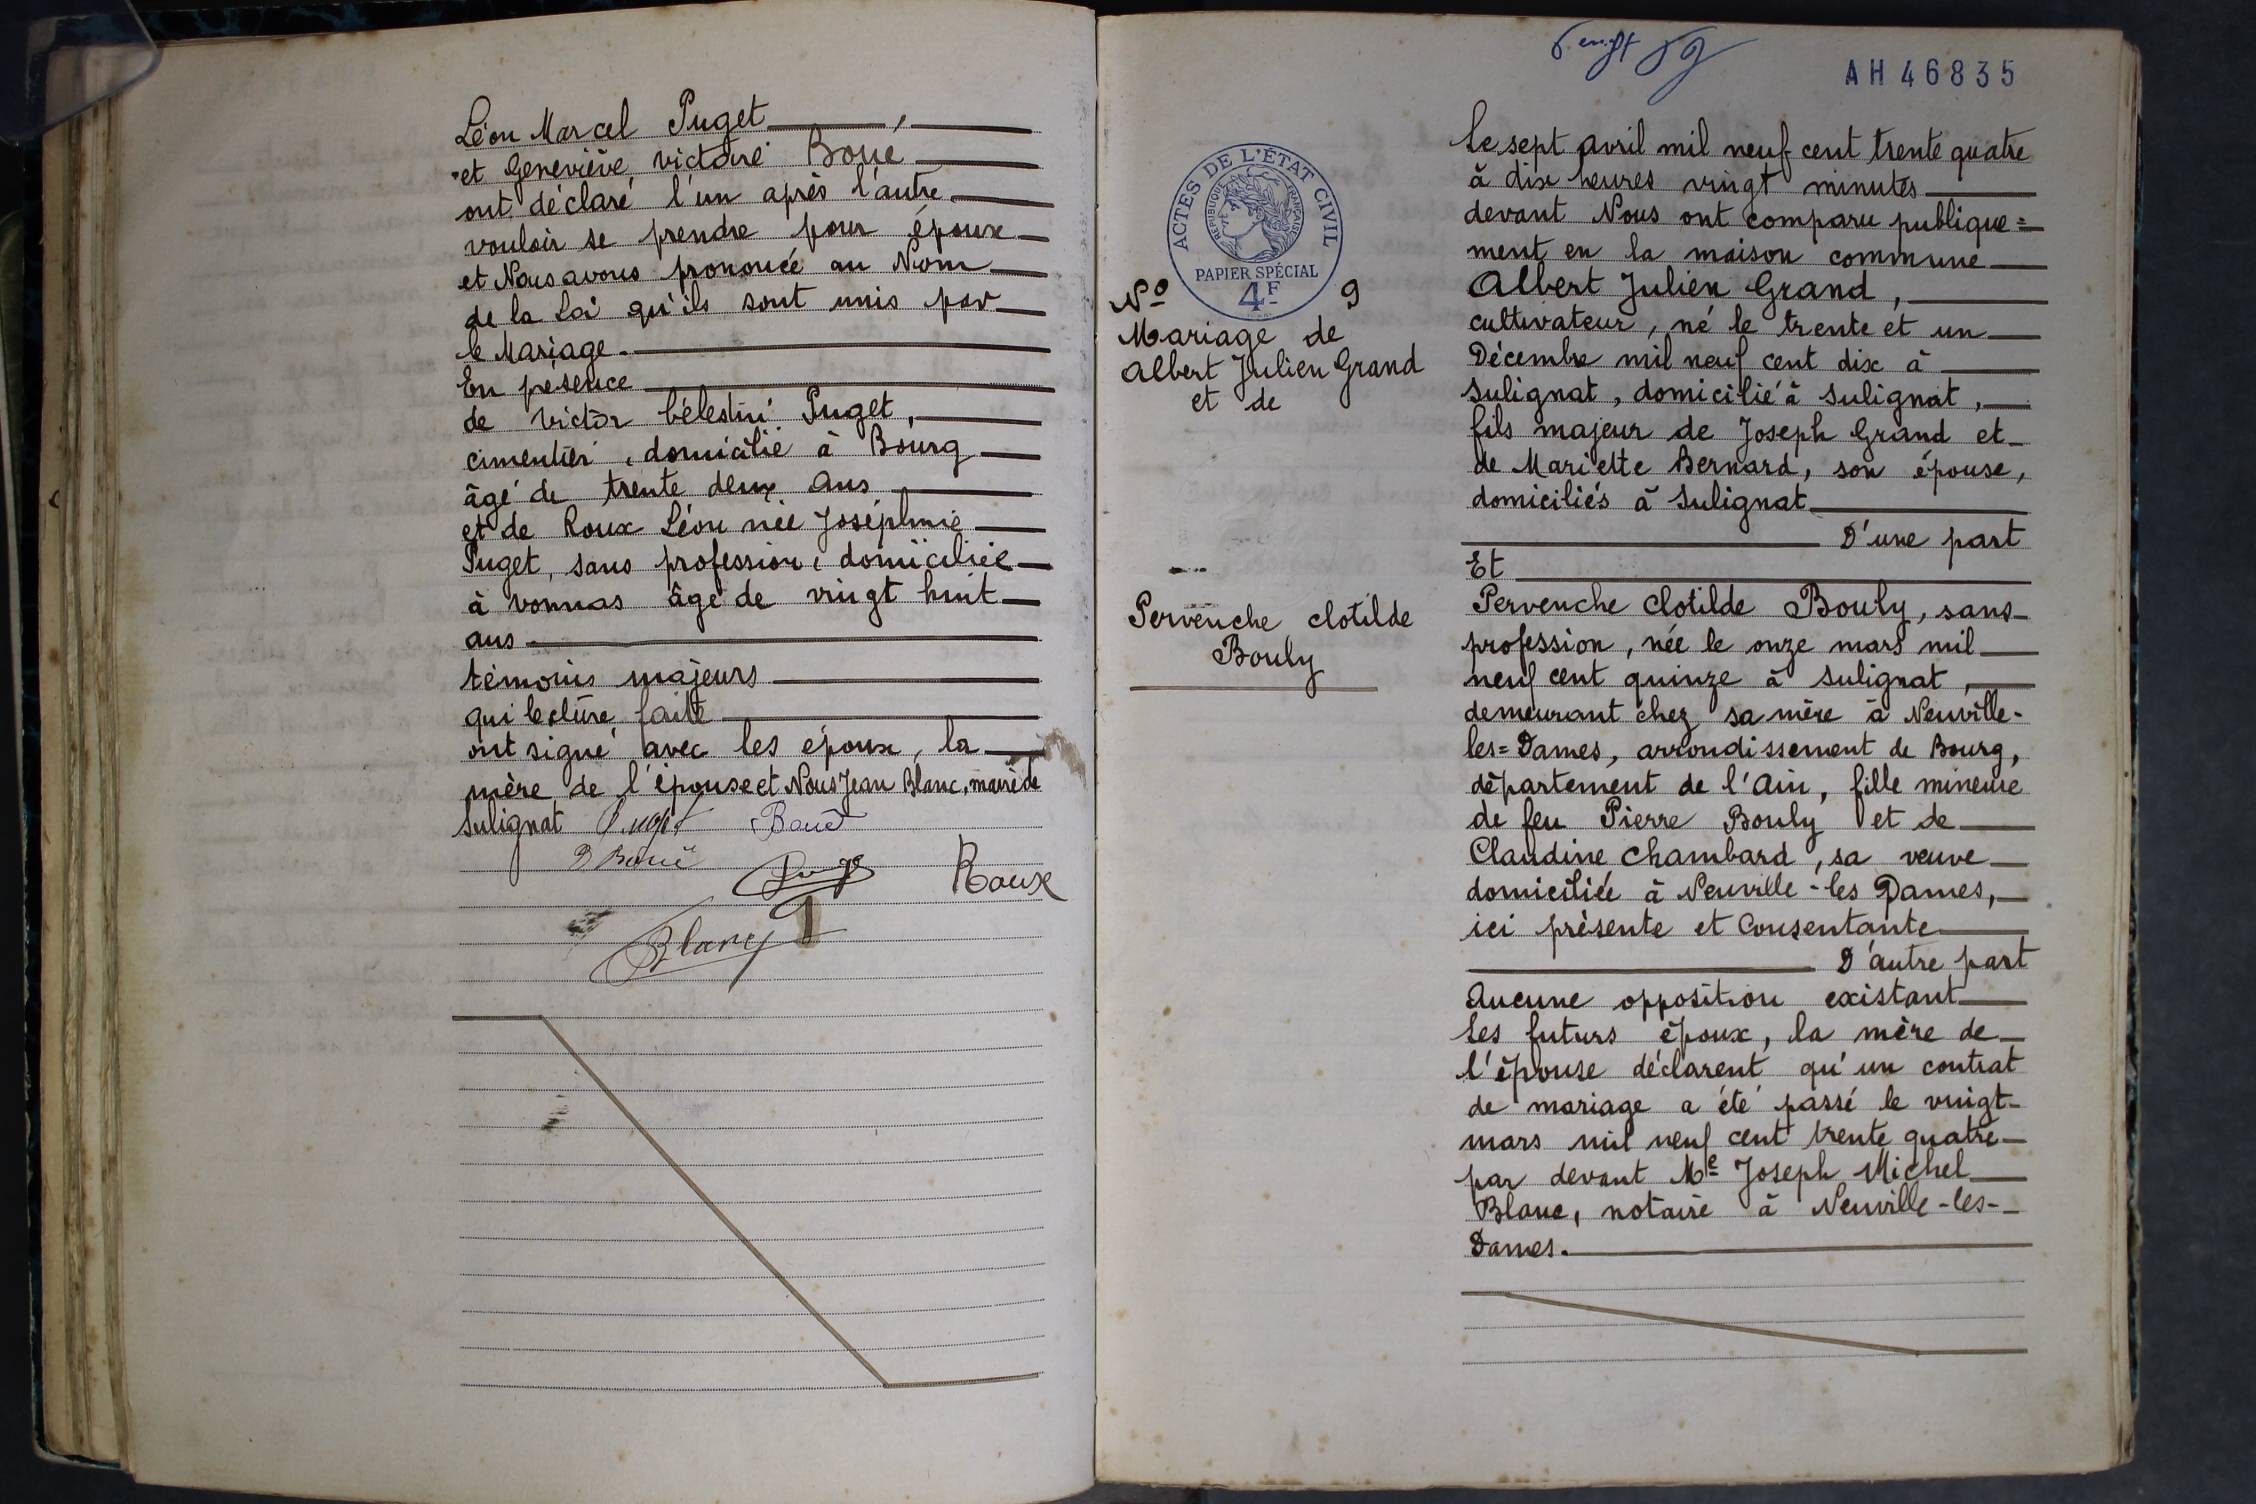 Léon Marcel Puget,
et Geneviève, victoire Boué
ont déclaré l'un après l'autre
vouloir se prendre pour époux
et Nous avons prononcé au Nom
de la Loi qu'ils sont unis par
le Mariage.
En présence
de Victor Célestin Puget,
cimentier, domicilié à Bourg
âgé de trente deux ans
et de Roux Léon née Joséphine
Puget, sans profession, domiciliée
à Vonnas âgé de vingt huit
ans
témoins majeurs
qui lecture faite
ont signé avec les époux, la
mère de l'épouse et Nous Jean Blanc, maire de
Sulignat Puget Boué
Boué
Roux
Blanc
AH 46835
ACTES DE L'ÉTAT CIVIL
RÉPUBLIQUE FRANÇAISE
PAPIER SPÉCIAL
4F
No 9
Mariage de
Albert Julien Grand
et de
Pervenche Clotilde
Bouly
Le sept avril mil neuf cent trente quatre
à dix heures vingt minutes
devant Nous ont comparu publique=
ment en la maison commune
Albert Julien Grand,
cultivateur, né le trente et un
Décembre mil neuf cent dix à
Sulignat, domicilié à Sulignat,
fils majeur de Joseph Grand et
de Mariette Bernard, son épouse,
domiciliés à Sulignat
D'une part
Et
Pervenche Clotilde Bouly, sans
profession, née le onze mars mil
neuf cent quinze à Sulignat,
demeurant chez sa mère à Neuville-
les=Dames, arrondissement de Bourg,
département de l'Ain, fille mineure
de feu Pierre Bouly et de
Claudine Chambard, sa veuve
domiciliée à Neuville-les Dames,
ici présente et Consentante
D'autre part
Aucune opposition existant
Les futurs époux, la mère de
l'épouse déclarent qu'un contrat
de mariage a été passé le vingt
mars mil neuf cent trente quatre
par devant Me Joseph Michel
Blanc, notaire à Neuville-les-
Dames.